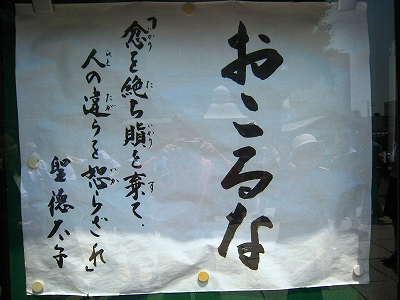 おこるな
忿を絶ち瞋を棄て、
人の違うを怒らざれ」
聖徳太子